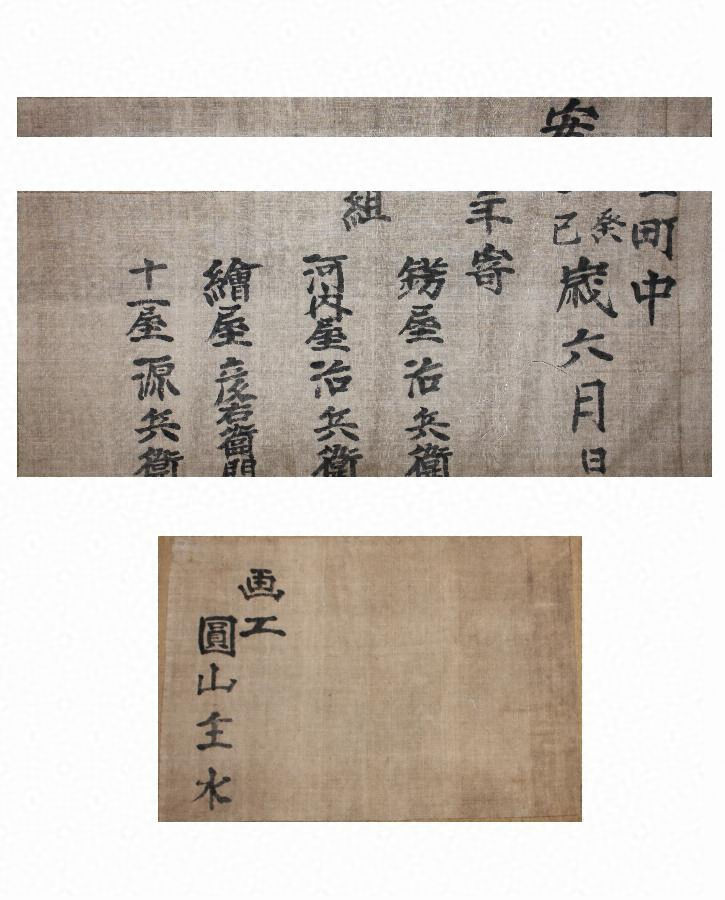 安
町中
癸
巳
歳六月日
年寄
錺屋治兵衛
組
河内屋治兵衛
繪屋彦右衛門
十一屋源兵衛
画工
圓山主水